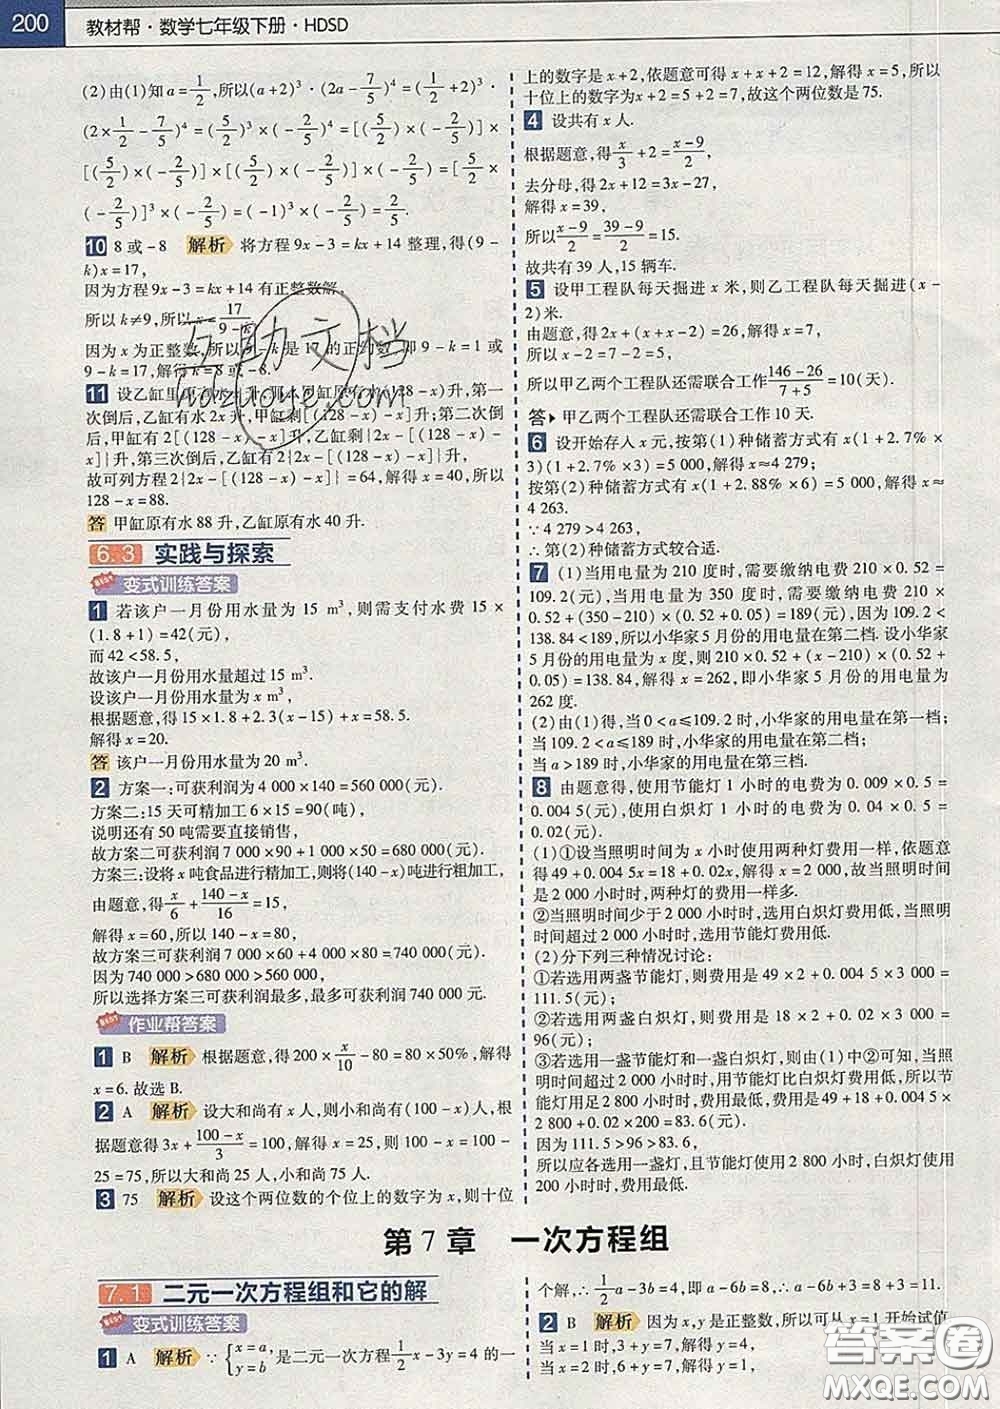 200 教材帮·数学七年级下册·HDSD
(2)由(1)知a=1/2,所以(a+2)³·(2a-7/5)⁴=(1/2+2)³·
(2×1/2-7/5)⁴=(5/2)³×(-2/5)⁴=[(5/2)×(-2/5)]×
[(5/2)×(-2/5)]×[(5/2)×(-2/5)]×(-2/5)=[5/2×
(-2/5)]³×(-2/5)=(-1)³×(-2/5)=2/5.
10 8或-8 解析 将方程9x-3=kx+14整理,得(9-
k)x=17,
因为方程9x-3=kx+14有正整数解,
所以k≠9,所以x=17/(9-k),
因为x为正整数,所以9-k是17的正约数,即9-k=1或
9-k=17,解得k=8或-8.
11 设乙缸里原有水x升,则甲缸原有水(128-x)升,第一
次倒后,乙缸有水2x升,甲缸剩[(128-x)-x]升;第二次倒
后,甲缸有2[(128-x)-x]升,乙缸剩{2x-[(128-x)-
x]}升,第三次倒后,乙缸有2{2x-[(128-x)-x]}升,
故可列方程2{2x-[(128-x)-x]}=64,解得x=40,所以
128-x=88.
答 甲缸原有水88升,乙缸原有水40升.
6.3 实践与探索
BEST 变式训练答案
1 若该户一月份用水量为15 m³,则需支付水费15×
(1.8+1)=42(元),
而42<58.5,
故该户一月份用水量超过15 m³.
设该户一月份用水量为x m³,
根据题意,得15×1.8+2.3(x-15)+x=58.5.
解得x=20.
答 该户一月份用水量为20 m³.
2 方案一:可获利润为4 000×140=560 000(元);
方案二:15天可精加工6×15=90(吨),
说明还有50吨需要直接销售,
故方案二可获利润7 000×90+1 000×50=680 000(元).
方案三:设将x吨食品进行精加工,则将(140-x)吨进行粗加工,
由题意,得x/6+(140-x)/16=15,
解得x=60,所以140-x=80,
故方案三可获利润7 000×60+4 000×80=740 000(元).
因为740 000>680 000>560 000,
所以选择方案三可获利润最多,最多可获利润740 000元.
BEST 作业帮答案
1 B 解析 根据题意,得200×x/10-80=80×50%,解得
x=6.故选B.
2 A 解析 设大和尚有x人,则小和尚有(100-x)人,根
据题意得3x+(100-x)/3=100,解得x=25,则100-x=100-
25=75,所以大和尚25人,小和尚75人.
3 75 解析 设这个两位数的个位上的数字为x,则十位
上的数字是x+2,依题意可得x+x+2=12,解得x=5,所以
十位上的数字为x+2=5+2=7,故这个两位数是75.
4 设共有x人.
根据题意,得x/3+2=(x-9)/2,
去分母,得2x+12=3x-27,
解得x=39,
所以(x-9)/2=(39-9)/2=15.
故共有39人,15辆车.
5 设甲工程队每天掘进x米,则乙工程队每天掘进(x-
2)米.
由题意,得2x+(x+x-2)=26,解得x=7,
所以x-2=7-2=5,
所以甲乙两个工程队还需联合工作(146-26)/(7+5)=10(天).
答 甲乙两个工程队还需联合工作10天.
6 设开始存入x元,按第(1)种储蓄方式有x(1+2.7%×
3)(1+2.7%×3)=5 000,解得x≈4 279;
按第(2)种储蓄方式有x(1+2.88%×6)=5 000,解得x≈
4 263.
∵4 279>4 263,
∴第(2)种储蓄方式较合适.
7 (1)当用电量为210度时,需要缴纳电费210×0.52=
109.2(元),当用电量为350度时,需要缴纳电费210×
0.52+(350-210)×(0.52+0.05)=189(元),因为109.2<
138.84<189,所以小华家5月份的用电量在第二档.设小华家
5月份的用电量为x度,则210×0.52+(x-210)×(0.52+
0.05)=138.84,解得x=262,即小华家5月份的用电量为
262度.
(2)由(1)得,当0<a≤109.2时,小华家的用电量在第一档;
当109.2<a≤189时,小华家的用电量在第二档;
当a>189时,小华家的用电量在第三档.
8 由题意得,使用节能灯1小时的电费为0.009×0.5=
0.004 5(元),使用白炽灯1小时的电费为0.04×0.5=
0.02(元).
(1)①设当照明时间为x小时使用两种灯费用一样,依题意
得49+0.004 5x=18+0.02x,解得x=2 000,故当照明时间
是2 000小时时,两种灯的费用一样多.
②当照明时间少于2 000小时时,选用白炽灯费用低,当照明时
间超过2 000小时时,选用节能灯费用低.
(2)分下列三种情况讨论:
①若选用两盏节能灯,则费用是49×2+0.004 5×3 000=
111.5(元);
②若选用两盏白炽灯,则费用是18×2+0.02×3 000=
96(元);
③若选用一盏节能灯和一盏白炽灯,则由(1)中②可知,当照明
时间超过2 000小时时,用节能灯比白炽灯费用低,所以节能
灯用足2 800小时时,费用最低.费用是49+18+0.004 5×
2 800+0.02×200=83.6(元).
因为111.5>96>83.6,
所以应各选用一盏灯,且节能灯使用2 800小时,白炽灯使用
200小时时,费用最低.
第7章 一次方程组
7.1 二元一次方程组和它的解
BEST 变式训练答案
1 A 解析 ∵{x=a, y=b,是二元一次方程1/2x-3y=4的一
个解,∴1/2a-3b=4,即a-6b=8,∴a-6b+3=8+3=11.
2 B 解析 因为x,y是正整数,所以可从x=1开始试值
当x=1时,3+y=7,解得y=4;
当x=2时,6+y=7,解得y=1,
互助文档
hdzuoye.com
答案圈
MXQE.COM